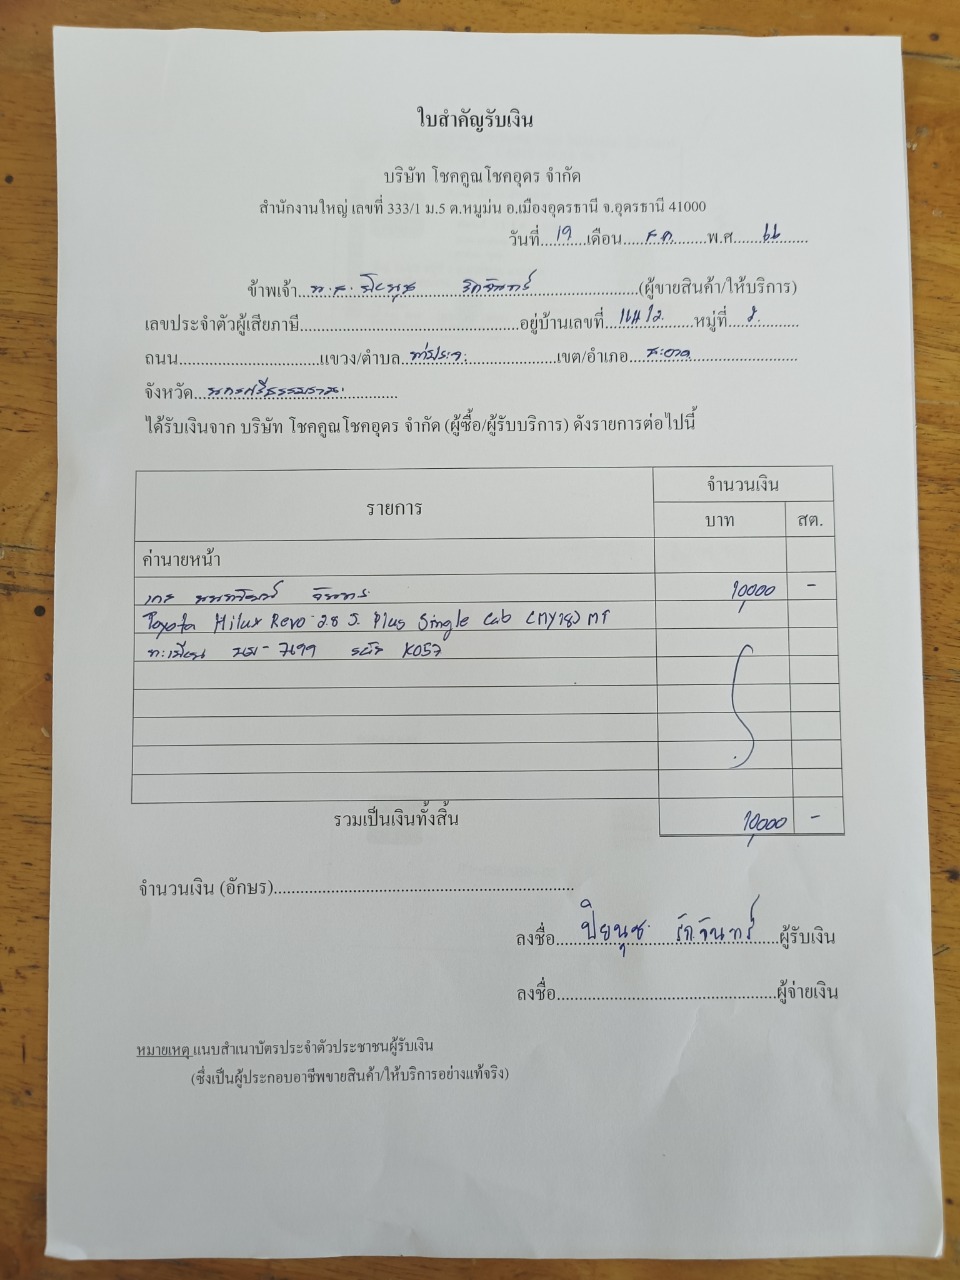 ใบสำคัญรับเงิน
บริษัท โชคคูณโชคอุดร จำกัด
สำนักงานใหญ่ เลขที่ 333/1 ม.5 ต.หมูม่น อ.เมืองอุดรธานี จ.อุดรธานี 41000
วันที่...19...เดือน...ธ.ค....พ.ศ...66...
ข้าพเจ้า...น.ส. ปิยนุช รักจันทร์...(ผู้ขายสินค้า/ให้บริการ)
เลขประจำตัวผู้เสียภาษี...อยู่บ้านเลขที่...หมู่ที่...
ถนน...แขวง/ตำบล...เขต/อำเภอ...
จังหวัด...นครศรีธรรมราช...
ได้รับเงินจาก บริษัท โชคคูณโชคอุดร จำกัด (ผู้ซื้อ/ผู้รับบริการ) ดังรายการต่อไปนี้
รายการ จำนวนเงิน
บาท สต.
ค่านายหน้า
10,000 -
Toyota Hilux Revo 2.8 J Plus Single Cab MT
ทะเบียน 7199 รหัส K057
รวมเป็นเงินทั้งสิ้น 10,000 -
จำนวนเงิน (อักษร)...
ลงชื่อ...ปิยนุช รักจันทร์...ผู้รับเงิน
ลงชื่อ...ผู้จ่ายเงิน
หมายเหตุ แนบสำเนาบัตรประจำตัวประชาชนผู้รับเงิน
(ซึ่งเป็นผู้ประกอบอาชีพขายสินค้า/ให้บริการอย่างแท้จริง)